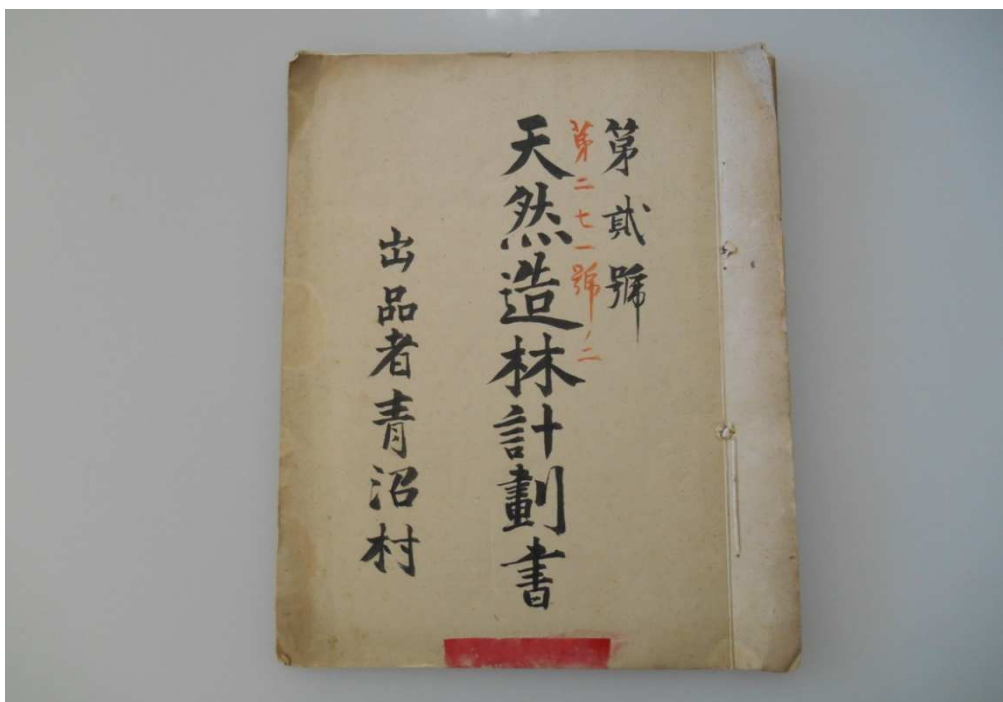 第貳號
第二七一號ノ二
天然造林計劃書
出品者青沼村